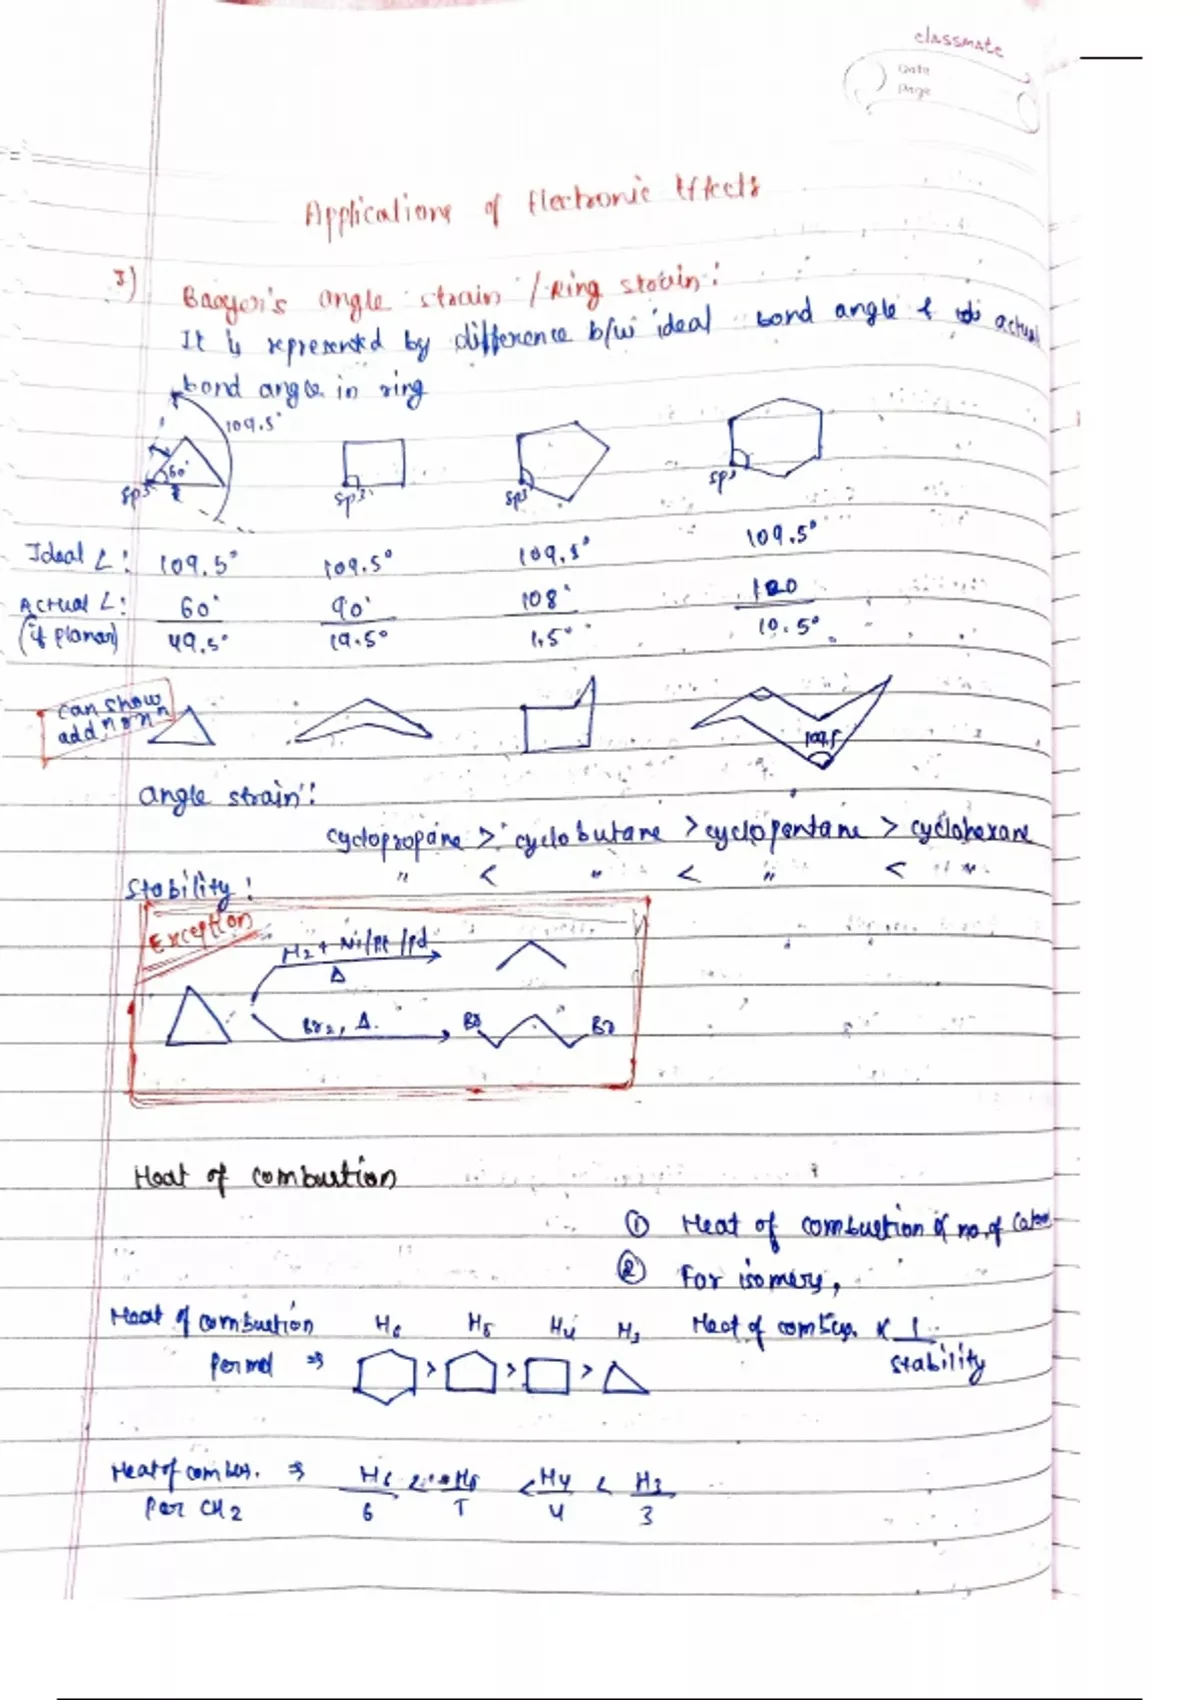 classmate
Date
Page
Applications of Electronic Effects
3) Baeyer's angle strain / Ring strain:
It is represented by difference b/w ideal bond angle & actual
bond angle in ring
109.5°
60°
sp3 sp3 sp3 sp3
Ideal ∠: 109.5° 109.5° 109.5° 109.5°
Actual ∠: 60° 90° 108° 120
(if planar) 49.5° 19.5° 1.5° 10.5°
can show
addn rxn
109.5
angle strain:
cyclopropane > cyclobutane > cyclopentane > cyclohexane
Stability: " < " < " < "
Exception
H2 + Ni/Pt/Pd
Δ
Br2, Δ. Br Br
Heat of combustion
① Heat of combustion ∝ no. of Catom
② For isomers,
Heat of combustion H6 H5 H4 H3 Heat of combus. ∝ 1
Per mol ⇒ > > > stability
Heat of combus. ⇒ H6 < H5 < H4 < H3
Per CH2 6 5 4 3